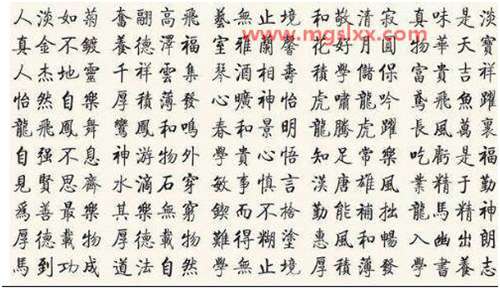 www.mgslxx.com
人淡如菊 奮翮高飛 藝無止境 和敬清寂 真味是淡
真金不鍍 養德澤福 室雅蘭馨 花好月圓 物華天寶
人杰地靈 千祥雲集 琴 學儲 富貴吉祥
怡然自樂 厚積薄發 心曠神怡 虎嘯龍吟 鳶飛魚躍
龍飛鳳舞 鸞鳳和鳴 春和景明 龍騰虎躍 長風萬裏
自强不息 神游物外 學貴心悟 知足常樂 吃虧是福
見賢思齊 水滴石穿 敏事慎言 漢唐雄風 業精于勤
爲善最樂 其樂無窮 鍥而不捨 勤能補拙 龍馬精神
厚德載物 厚德載物 難得糊塗 惠風和暢 入幽出朗
馬到功成 道法自然 學無止境 厚積薄發 學書養志